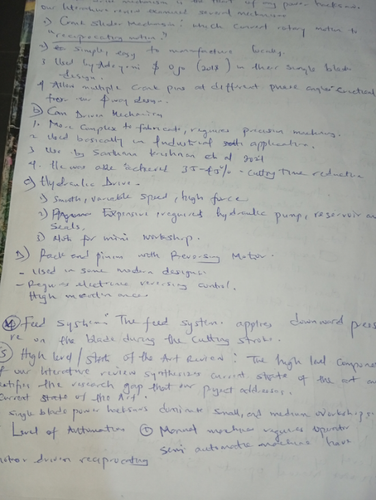 mechanism is the heart of my power hacksaw.
Our literature review several mechanism
1) Crank Slider Mechanism: which convert rotary motion to
"reciprocating motion"
2) Simple, easy to manufacture
3 Used by Adeyemi & Ojo (2018) in their single blade design.
4 Allow multiple Crank pins at different phase angles
for design.
b) Cam Driven Mechanism
1. More Complex to fabricate, requires precision machining.
2 Used basically in Industrial application.
3 Use by et al 2021
4. achieved 35-45% Cutting Time reduction
c) Hydraulic Drive
1) Smooth, variable speed, high force
2) Expensive required hydraulic pump, reservoir and
Seals.
3) Not for mini workshop.
D) Rack and pinion with Reversing Motor.
- Used in some modern designs.
- Require electronic reversing control.
High maintenance.
4) Feed System: The feed system applies downward press
re on the blade during the Cutting stroke.
5 High level / State of the Art Review: The high level Component
of our literature review synthesizes current state of the art and
the research gap that our project addresses.
Current State of the Art.
Single blade power hacksaws dominate small and medium workshops.
Level of Automation ① Manual machine requires operator
Semi automatic machine have
motor driven reciprocating